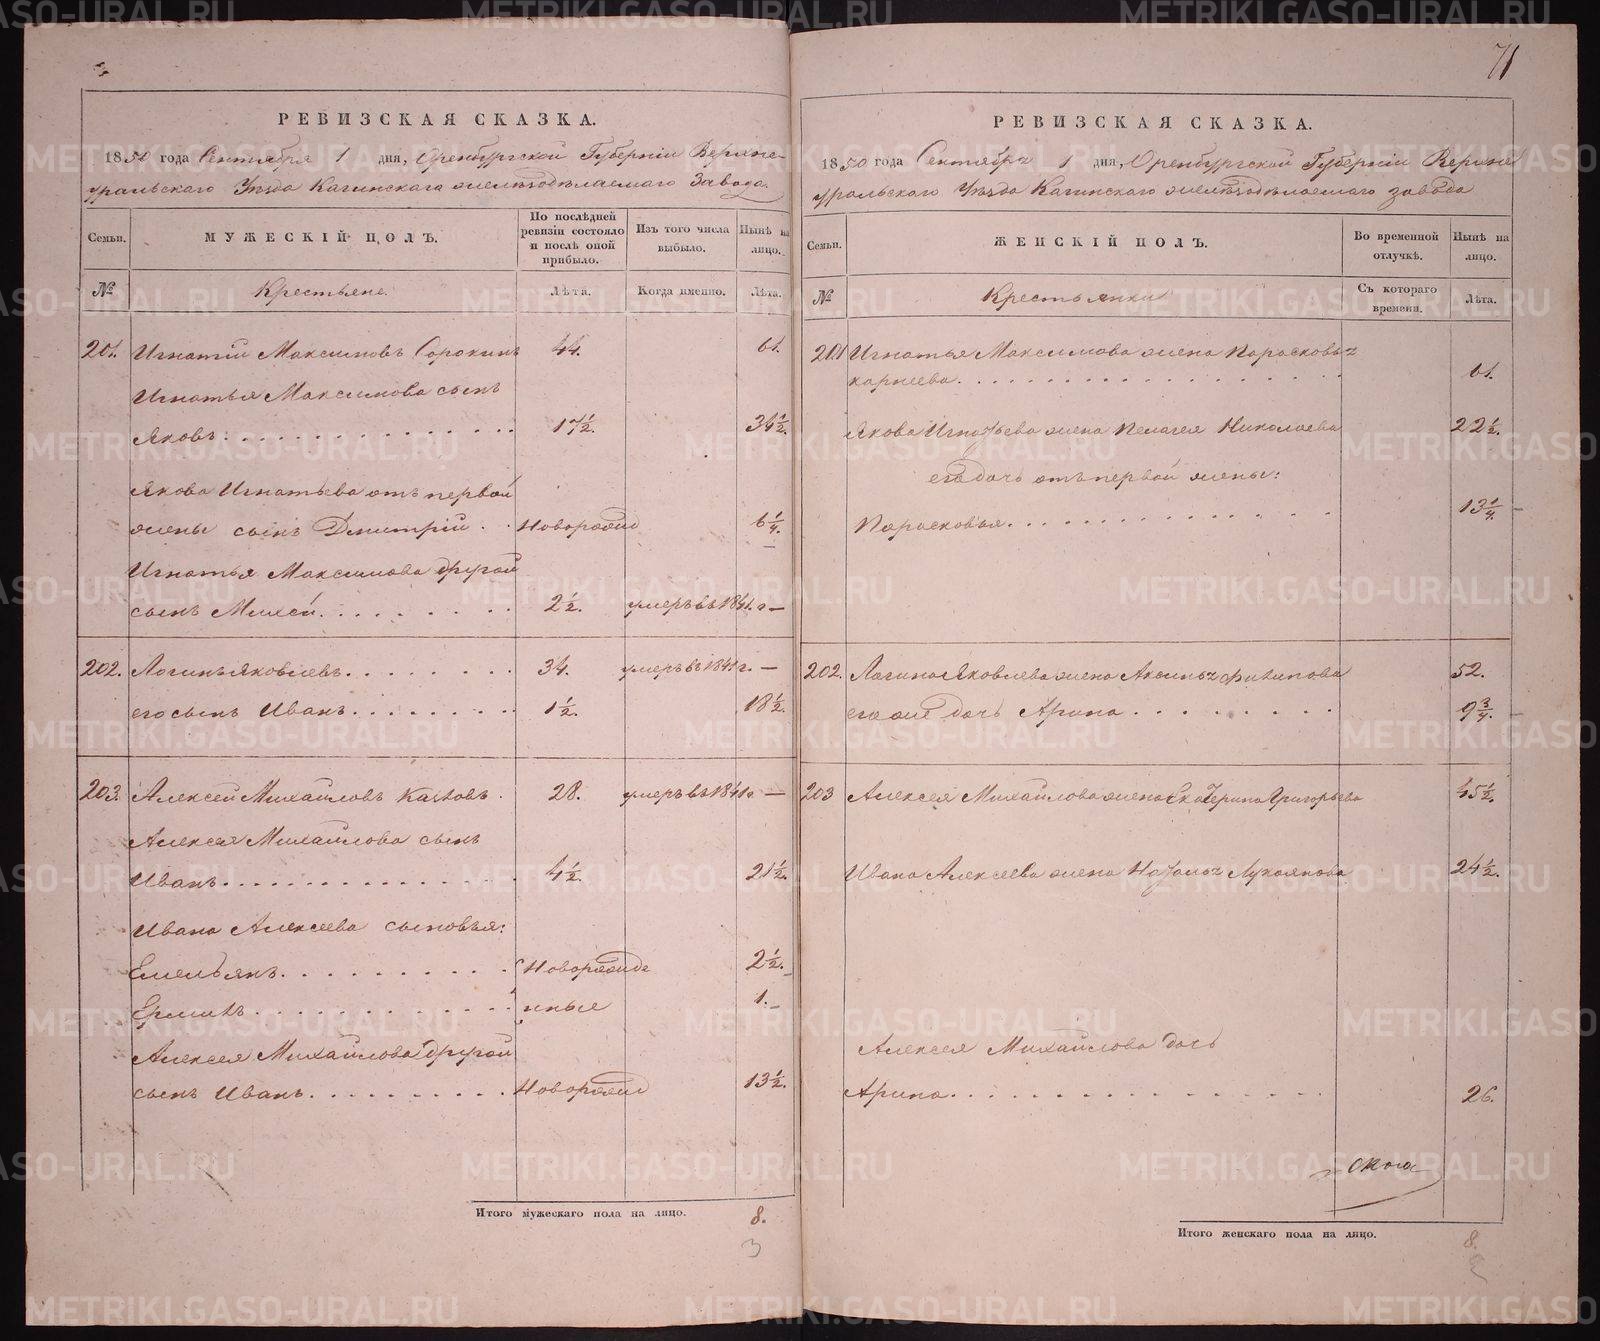 71
РЕВИЗСКАЯ СКАЗКА.
1850 года Сентября 1 дня, Оренбургской Губерніи Верхне-
уральскаго Уѣзда Кагинскаго желѣзодѣлаемаго Завода.
Семьи.
МУЖЕСКІЙ ПОЛЪ.
По послѣдней ревизіи состояло и послѣ оной прибыло.
Изъ того числа выбыло.
Нынѣ на лицо.
№
Крестьяне.
Лѣта.
Когда именно.
Лѣта.
201. Игнатій Максимовъ Сорокинъ 44. 61.
Игнатья Максимова сынъ
Яковъ 17½. 34½.
Якова Игнатьева отъ первой
жены сынъ Дмитрій Новорожд 6¼.
Игнатья Максимова другой
сынъ Михей 2½. умеръ въ 1841. г —
202. Логинъ Яковлевъ 34. умеръ въ 1841 г. —
его сынъ Иванъ 1½. 18½.
203 Алексей Михайловъ 28. умеръ въ 1841 г —
Алексея Михайлова сынъ
Иванъ 4½. 21½.
Ивана Алексеева сыновья:
Емельянъ Новорожде 2½.
Ермилъ нные 1.
Алексея Михайлова другой
сынъ Иванъ Новорожд 13½.
Итого мужескаго пола на лицо. 8.
3
РЕВИЗСКАЯ СКАЗКА.
1850 года Сентября 1 дня, Оренбургской Губерніи Верхне
уральскаго Уѣзда Кагинскаго желѣзодѣлаемаго завода
Семьи.
ЖЕНСКІЙ ПОЛЪ.
Во временной отлучкѣ.
Нынѣ на лицо.
№
Крестьянки
Съ котораго времени.
Лѣта.
201 Игнатья Максимова жена Парасковья
карнеева 61.
Якова Игнатьева жена Пелагея Николаева 22½.
его дочь отъ первой жены:
Парасковья 13¼.
202. Логина Яковлева жена Аксинья филипова 52.
его же дочь Арина 9¾.
203 Алексея Михайлова жена Екатерина Григорьева 45½.
Ивана Алексеева жена Наталья Лукоянова 24½.
Алексея Михайлова дочь
Арина 26.
Итого женскаго пола на лицо. 8.
METRIKI.GASO-URAL.RU